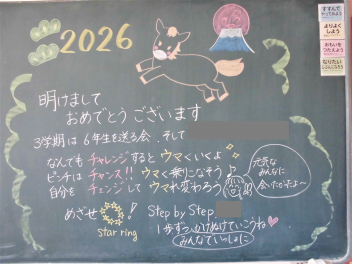 2026
明けまして
おめでとうございます
3学期は6年生を送る会、そして
なんでもチャレンジするとウマくいくよ
ピンチはチャンス!!ウマく乗りこなそう♪
自分をチェンジしてウマれ変わろう
元気な
みんなに
会いたかったよ〜
めざせ
star ring
Step by Step
1歩ずつかけぬけていこうね
みんないっしょに
すすんで
やってみよう
よりよく
しよう
おもいを
つたえよう
なりたい
じぶんになろう